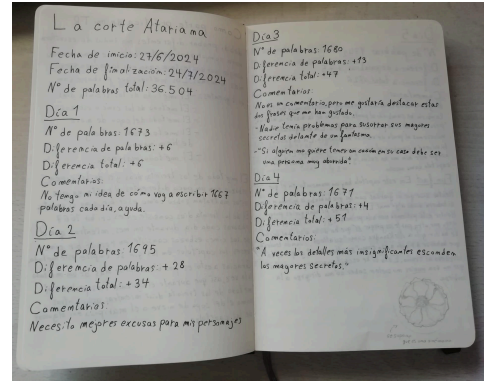 La corte Atariama
Fecha de inicio: 27/6/2024
Fecha de finalización: 24/7/2024
Nº de palabras total: 36.504
Día 1
Nº de palabras: 1673
Diferencia de palabras: +6
Diferencia total: +6
Comentarios:
No tengo ni idea de cómo voy a escribir 1667
palabras cada día, ayuda.
Día 2
Nº de palabras: 1695
Diferencia de palabras: +28
Diferencia total: +34
Comentarios:
Necesito mejores excusas para mis personajes
Día 3
Nº de palabras: 1680
Diferencia de palabras: +13
Diferencia total: +47
Comentarios:
No es un comentario, pero me gustaría destacar estas
dos frases que me han gustado.
-Nadie tenía problemas para susurrar sus mayores
secretos delante de un fantasma.
-"Si alguien no quiere tener un cotilla en su casa debe ser
una persona muy aburrida"
Día 4
Nº de palabras: 1671
Diferencia de palabras: +4
Diferencia total: +51
Comentarios:
"A veces los detalles más insignificantes esconden
los mayores secretos."